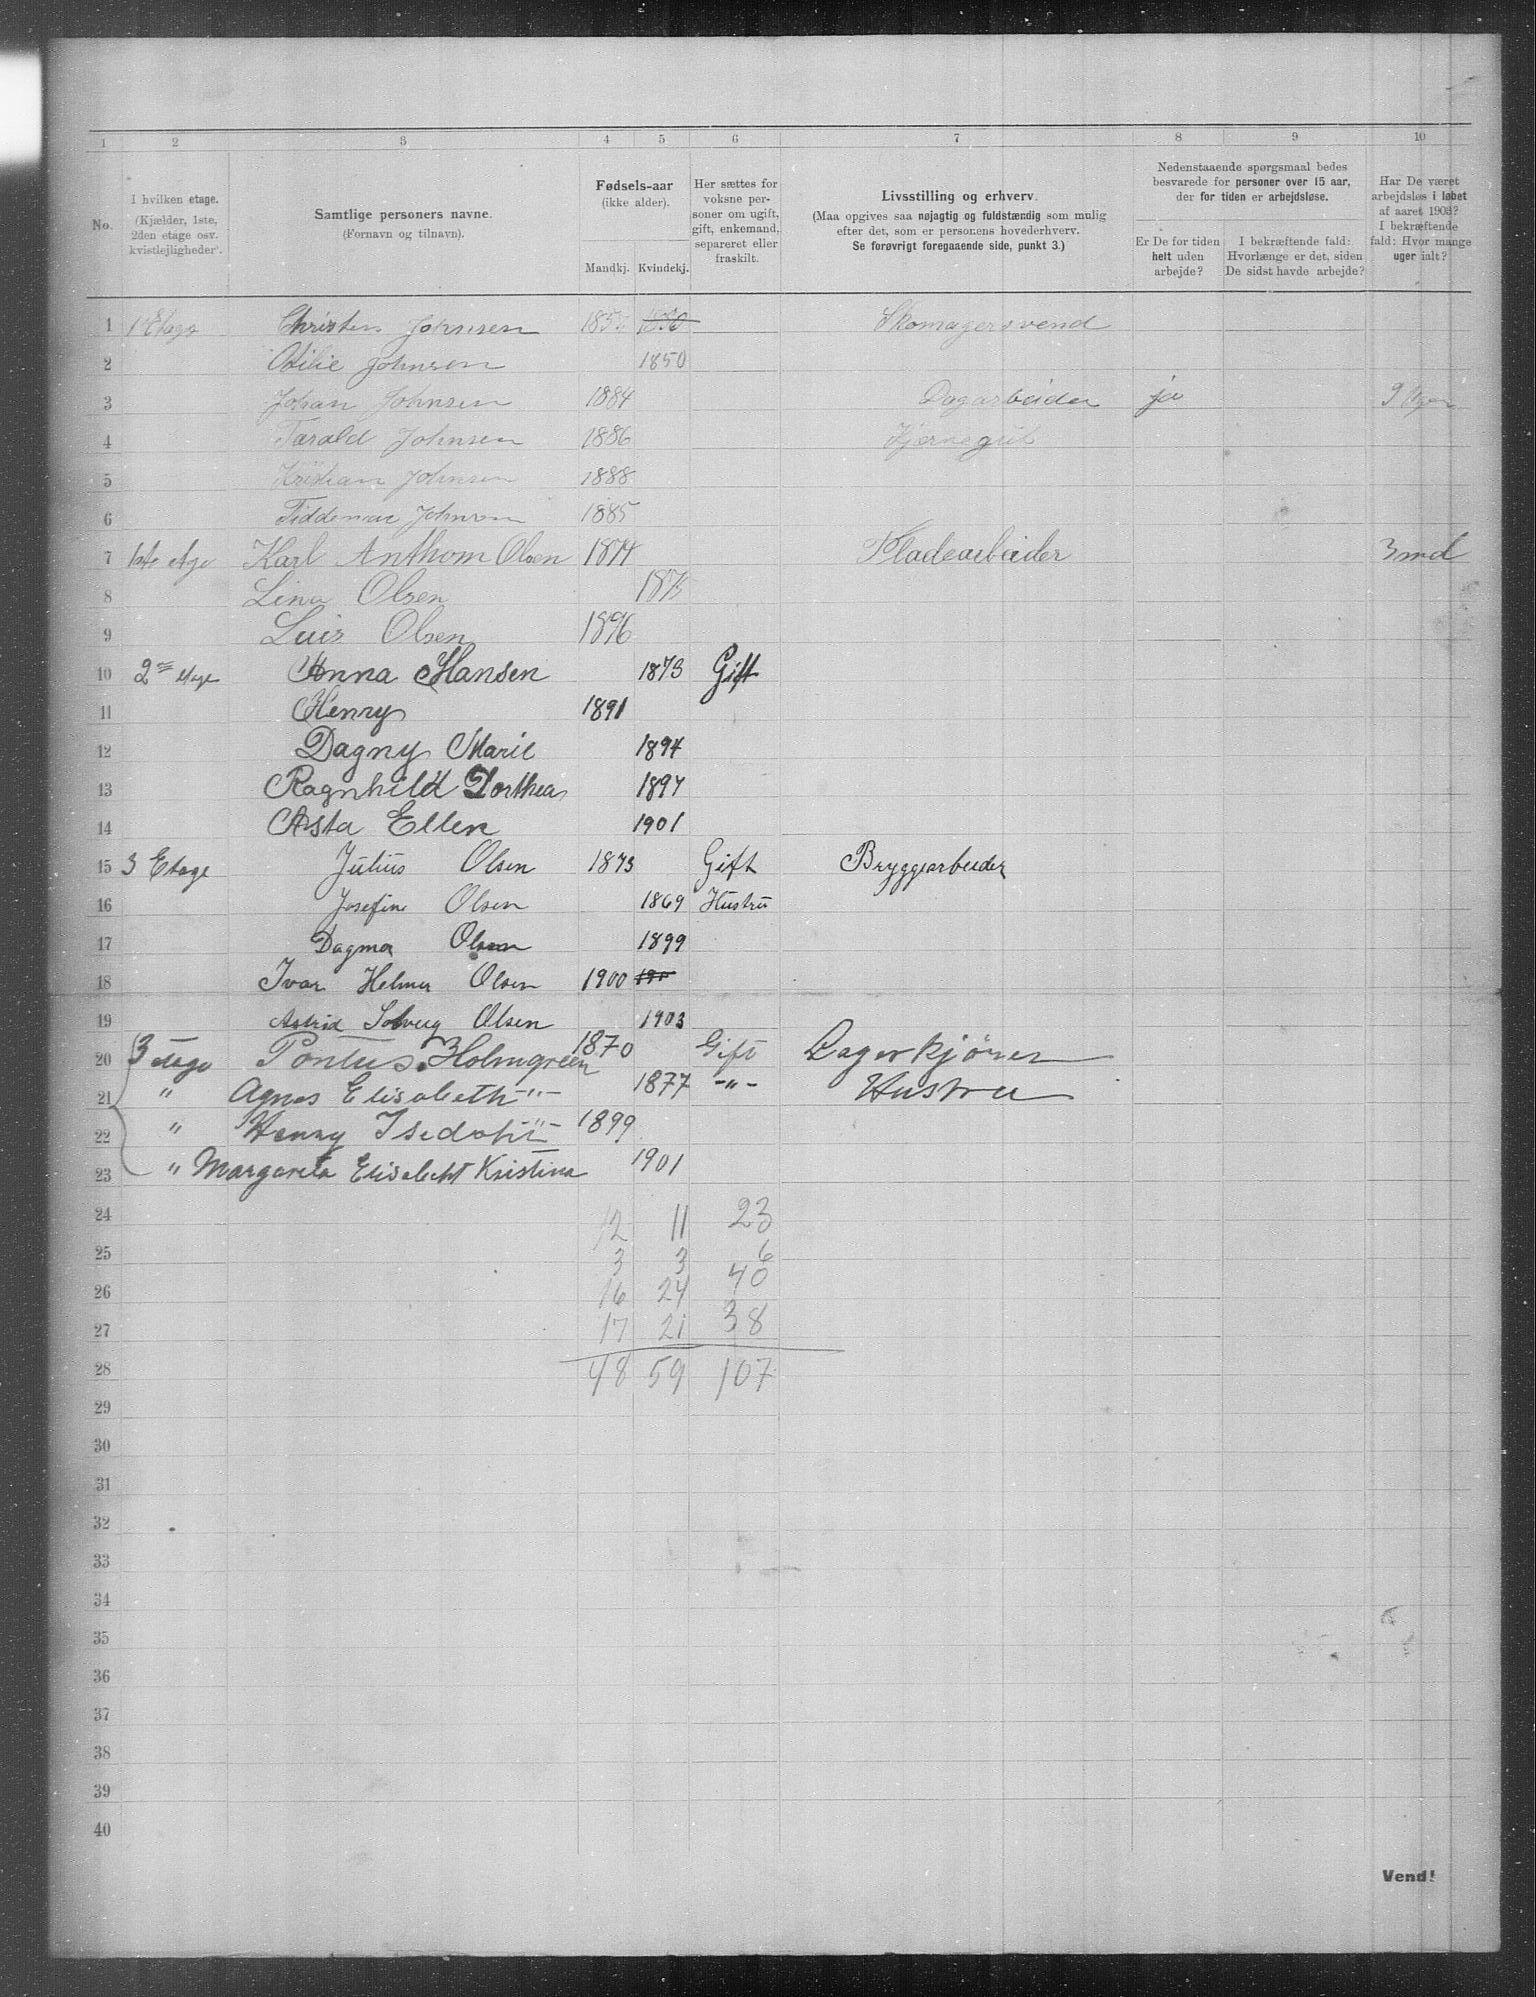 1 2 3 4 5 6 7 8 9 10
No.
I hvilken etage.
(Kjælder, 1ste,
2den etage osv.
kvistlejligheder).
Samtlige personers navne.
(Fornavn og tilnavn).
Fødsels-aar
(ikke alder).
Mandkj. Kvindekj.
Her sættes for
voksne per-
soner om ugift,
gift, enkemand,
separeret eller
fraskilt.
Livsstilling og erhverv.
(Maa opgives saa nøjagtig og fuldstændig som mulig
efter det, som er personens hovederhverv.
Se forøvrigt foregaaende side, punkt 3.)
Nedenstaaende spørgsmaal bedes
besvarede for personer over 15 aar,
der for tiden er arbejdsløse.
Er De for tiden
helt uden
arbejde?
I bekræftende fald:
Hvorlænge er det, siden
De sidst havde arbejde?
Har De været
arbejdsløs i løbet
af aaret 1903?
I bekræftende
fald: Hvor mange
uger ialt?
1 1 Etage Christen Johnsen 1830 Skomagersvend
2 Otilie Johnsen 1850
3 Johan Johnsen 1884 Dagarbeider ja 9 Uger
4 Tarald Johnsen 1886
5 Kristian Johnsen 1888
6 Johnsen 1885
7 1ste etage Karl Anthom Olsen 1874 Pladearbeider 3 md
8 Lina Olsen 1873
9 Luis Olsen 1896
10 2en etage Anna Hansen 1873 Gift
11 Henry 1891
12 Dagny Marie 1894
13 Ragnhild Dorthea 1897
14 Asta Ellen 1901
15 3 Etage Julius Olsen 1873 Gift Bryggearbeider
16 Josefine Olsen 1869 Hustru
17 Dagmar Olsen 1899
18 Ivar Helmer Olsen 1900
19 Astrid Solveig Olsen 1903
20 3 etage Pontus Holmgreen 1870 Gift Lagerkjører
21 " Agnes Elisabeth -"- 1877 -"- Hustru
22 " Henry -"- 1899
23 " Margareta Elisabeht Kristina 1901
24 12 11 23
25 3 3 6
26 16 24 40
27 17 21 38
28 48 59 107
29
30
31
32
33
34
35
36
37
38
39
40
Vend!